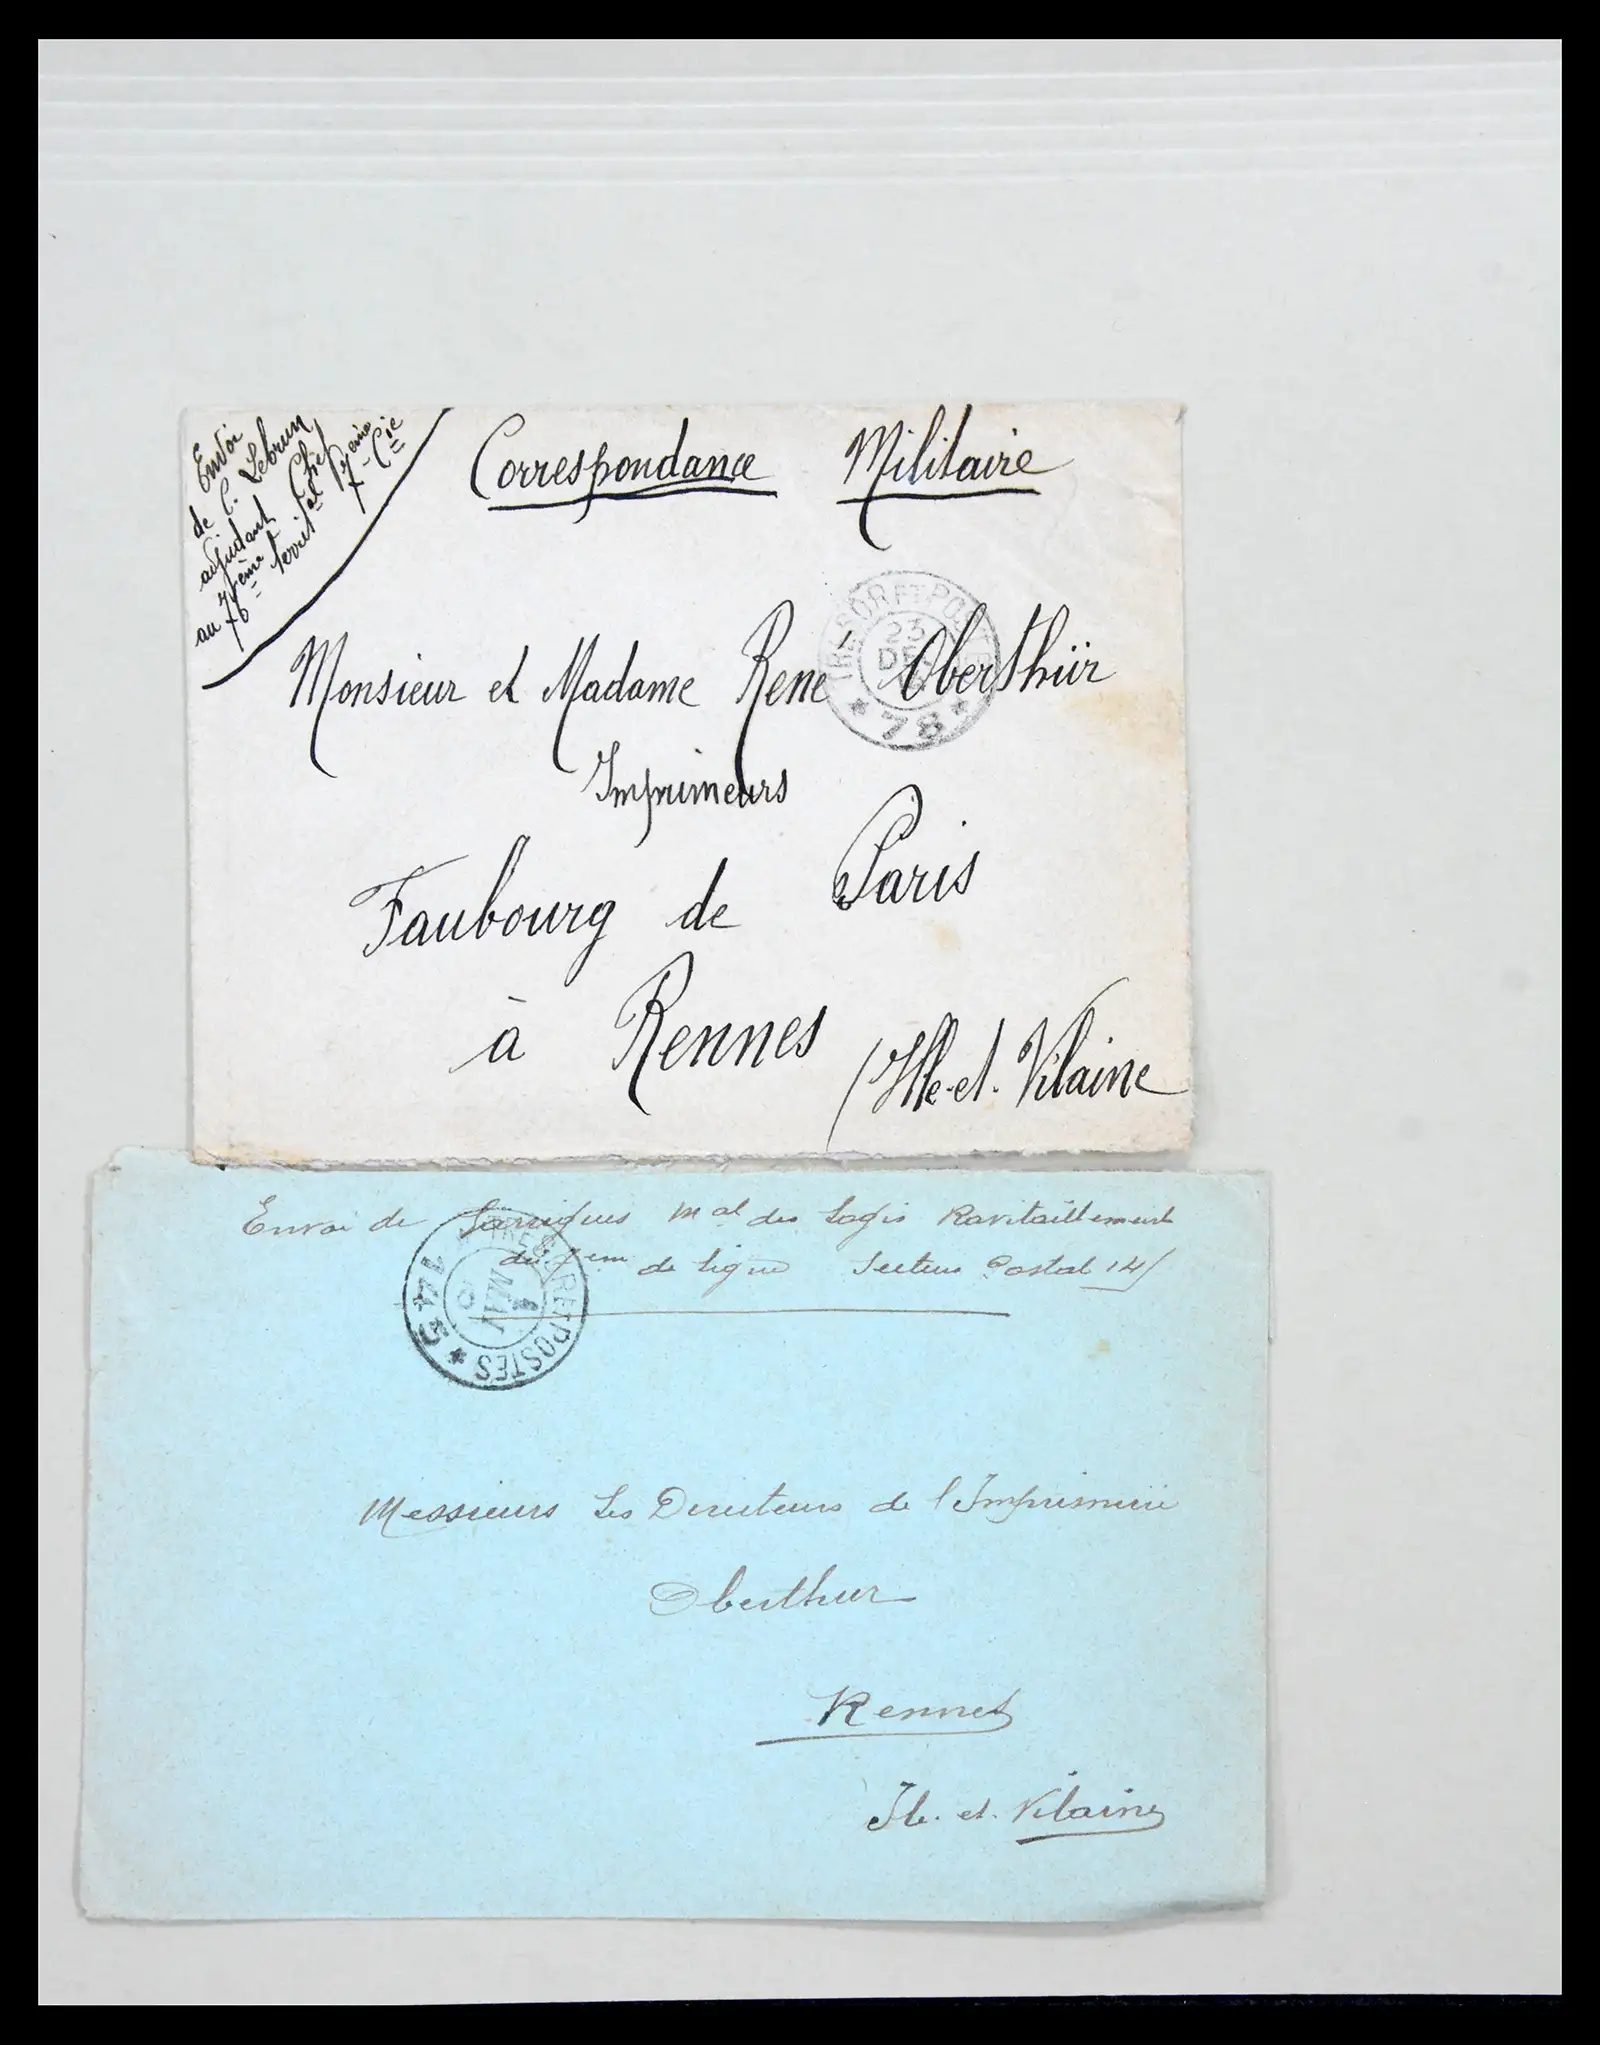 Envoi
de C. Lebrun
adjudant Chef
au 76ème territal 7ème Cie
Correspondance Militaire
TRESOR ET POSTES
23
DEC
* 78 *
Monsieur et Madame René Oberthür
Imprimeurs
Faubourg de Paris
à Rennes
(Ille-et-Vilaine
Envoi de Garrigues Mal des Logis Ravitaillement
du 7em de ligne Secteur Postal 14
TRESOR ET POSTES *
MAI
Messieurs Les Directeurs de l'Imprimerie
Oberthur
Rennes
Ile. et. Vilaine